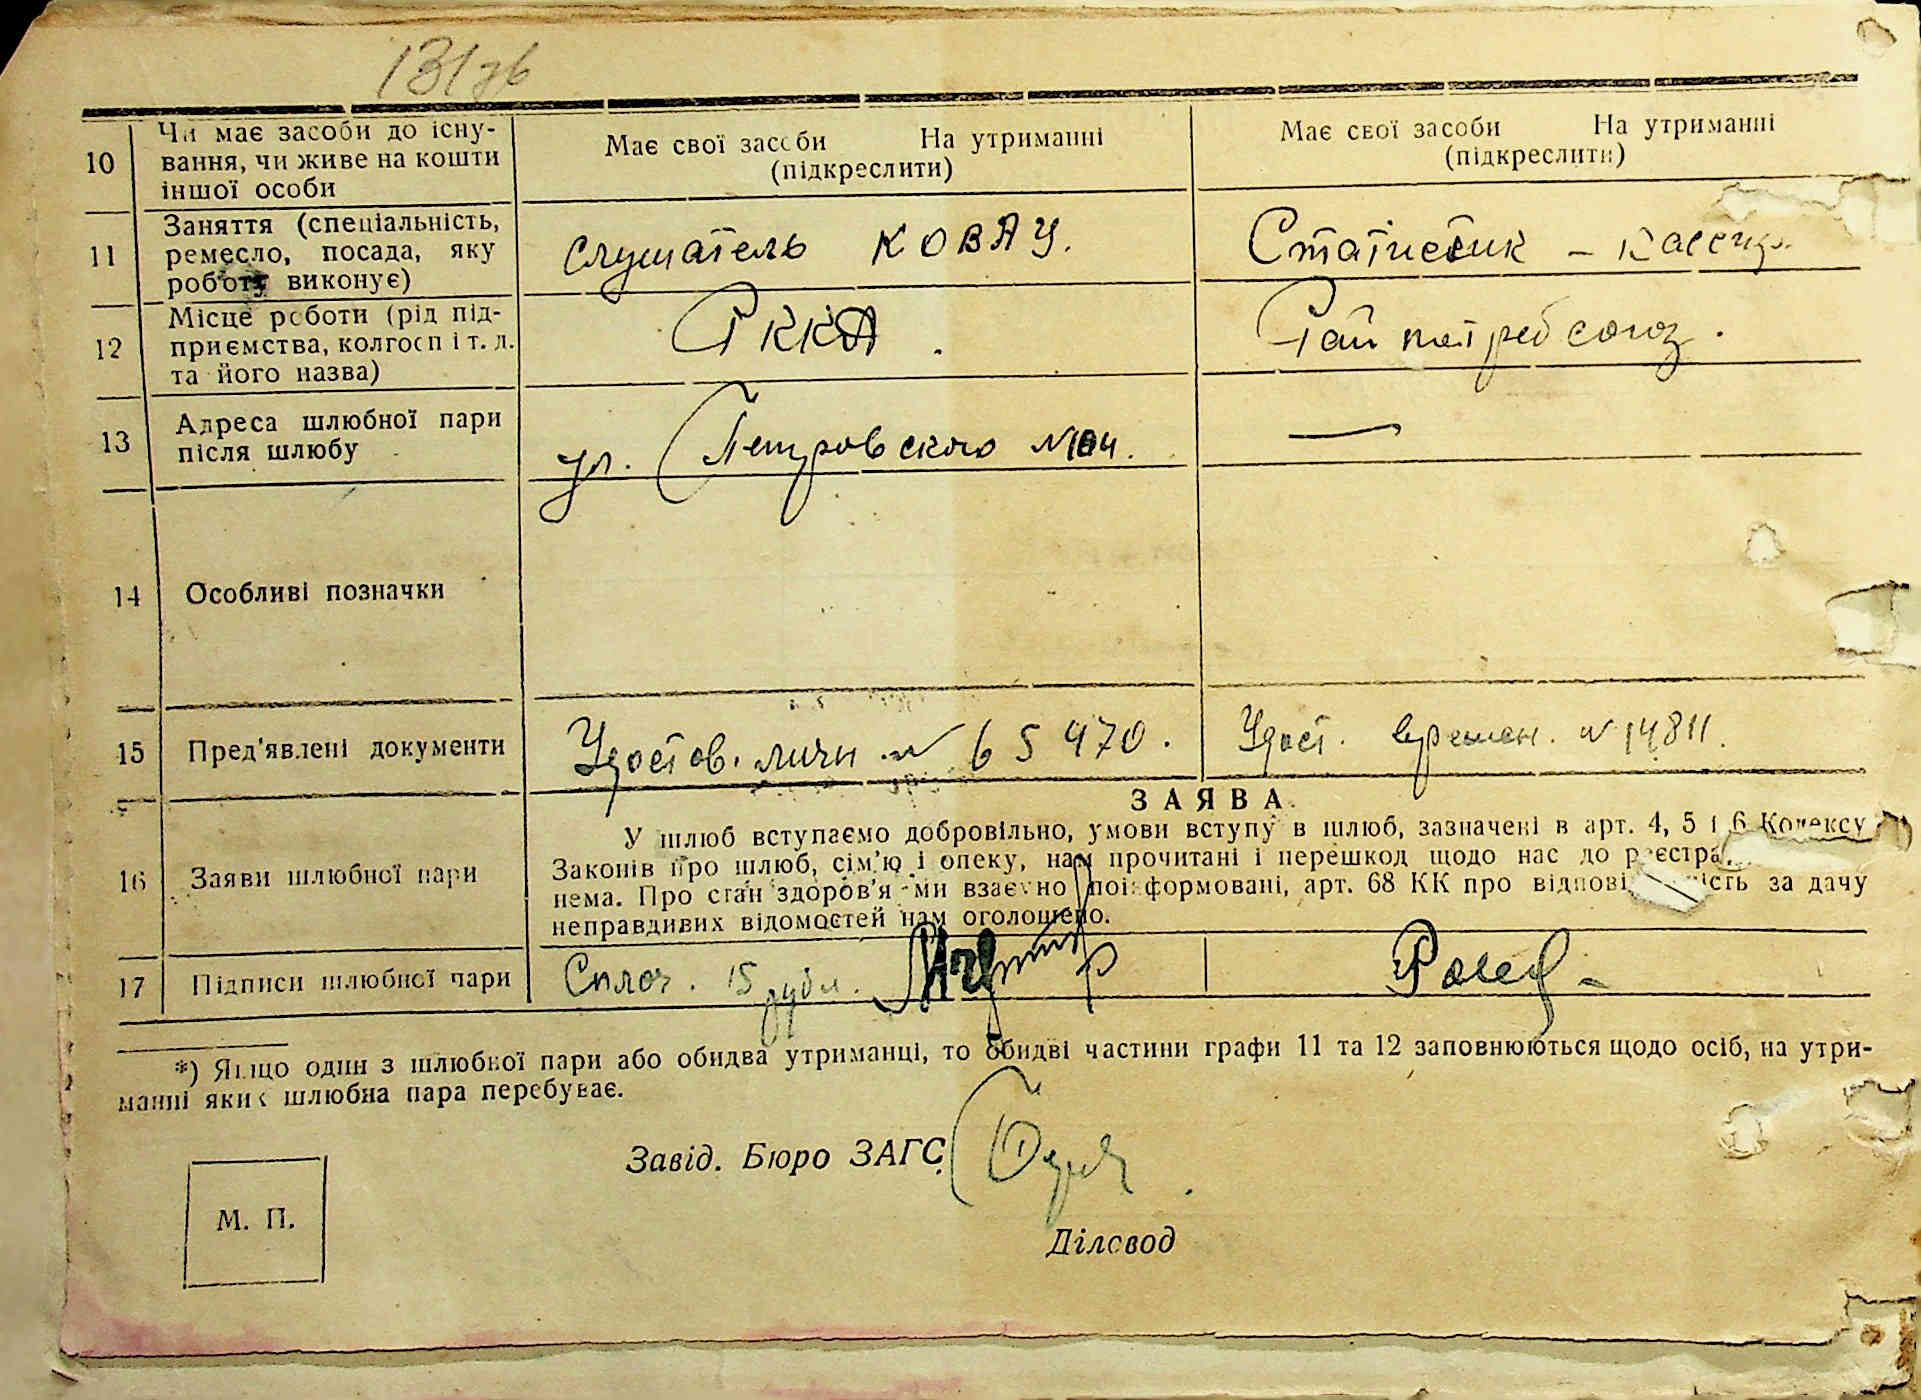 131 зв
10 Чи має засоби до існу-
вання, чи живе на кошти
іншої особи
Має свої засоби На утриманні
(підкреслити)
Має свої засоби На утриманні
(підкреслити)
11 Заняття (спеціальність,
ремесло, посада, яку
роботу виконує)
слушатель КОВАУ.
Статистик - кассир
12 Місце роботи (рід під-
приємства, колгосп і т. д.
та його назва)
РККА.
Райпотребсоюз.
13 Адреса шлюбної пари
після шлюбу
ул. Петровского №104.
—
14 Особливі позначки
15 Пред'явлені документи
Удостов. личн. № 65470.
Удост. времен. № 14811.
16 Заяви шлюбної пари
ЗАЯВА.
У шлюб вступаємо добровільно, умови вступу в шлюб, зазначені в арт. 4, 5 і 6 Кодексу
Законів про шлюб, сім'ю і опеку, нам прочитані і перешкод щодо нас до реєстра
нема. Про стан здоров'я ми взаємно поінформовані, арт. 68 КК про відпові ність за дачу
неправдивих відомостей нам оголошено.
17 Підписи шлюбної пари
Сплоч. 15 рубл.
*) Якщо один з шлюбної пари або обидва утриманці, то обидві частини графи 11 та 12 заповнюються щодо осіб, на утри-
манні яких шлюбна пара перебуває.
Завід. Бюро ЗАГС
М. П.
Діловод